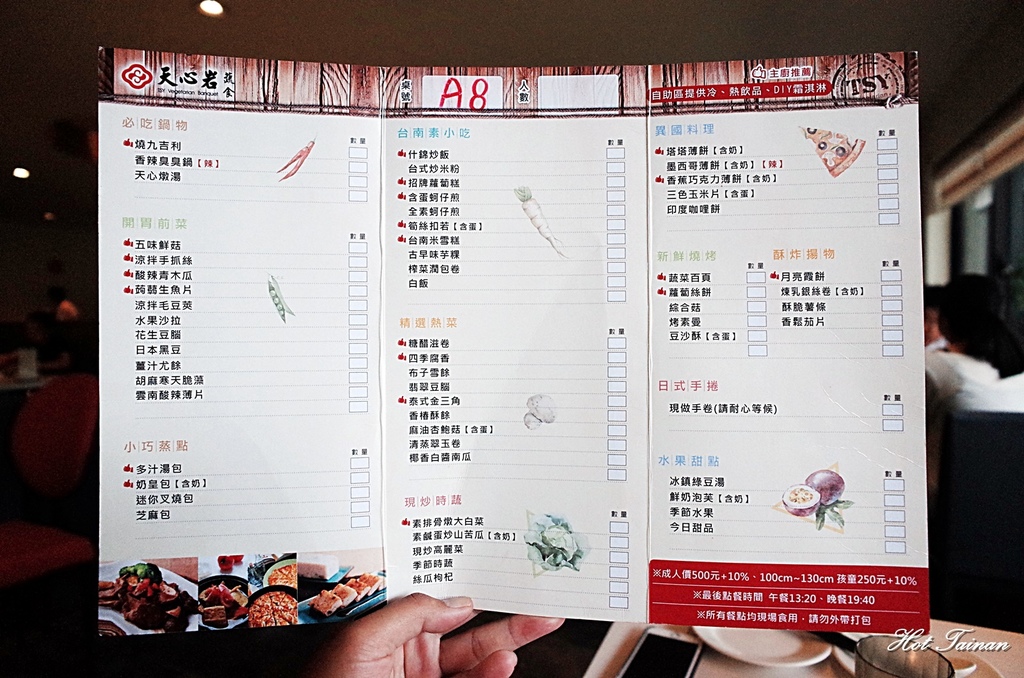 天心岩 蔬食
TSY Vegetarian Banquet
桌號 A8 人數
主廚推薦
自助區提供冷、熱飲品、DIY霜淇淋
TSY
必吃鍋物
數量
燒九吉利
香辣臭臭鍋【辣】
天心燉湯
開胃前菜
數量
五味鮮菇
涼拌手抓絲
酸辣青木瓜
蒟蒻生魚片
涼拌毛豆莢
水果沙拉
花生豆腦
日本黑豆
薑汁尤餘
胡麻寒天脆藻
雲南酸辣薄片
小巧蒸點
數量
多汁湯包
奶皇包【含奶】
迷你叉燒包
芝麻包
台南素小吃
數量
什錦炒飯
台式炒米粉
招牌蘿蔔糕
含蛋蚵仔煎
全素蚵仔煎
筍絲扣若【含蛋】
台南米雪糕
古早味芋粿
榨菜潤包卷
白飯
精選熱菜
數量
糖醋滋卷
四季腐香
布子雪餘
翡翠豆腦
泰式金三角
香椿酥餘
麻油杏鮑菇【含蛋】
清蒸翠玉卷
椰香白醬南瓜
現炒時蔬
數量
素排骨燉大白菜
素鹹蛋炒山苦瓜【含奶】
現炒高麗菜
季節時蔬
絲瓜枸杞
異國料理
數量
塔塔薄餅【含奶】
墨西哥薄餅【含奶】【辣】
香蕉巧克力薄餅【含奶】
三色玉米片【含蛋】
印度咖哩餅
新鮮燒烤
數量
蔬菜百頁
蘿蔔絲餅
綜合菇
烤素蔓
豆沙酥【含蛋】
酥炸搨物
數量
月亮霞餅
煉乳銀絲卷【含奶】
酥脆薯條
香鬆茄片
日式手捲
數量
現做手卷(請耐心等候)
水果甜點
數量
冰鎮綠豆湯
鮮奶泡芙【含奶】
季節水果
今日甜品
※成人價500元+10%、100cm~130cm 孩童250元+10%
※最後點餐時間 午餐13:20、晚餐19:40
※所有餐點均現場食用，請勿外帶打包
Hot Tainan